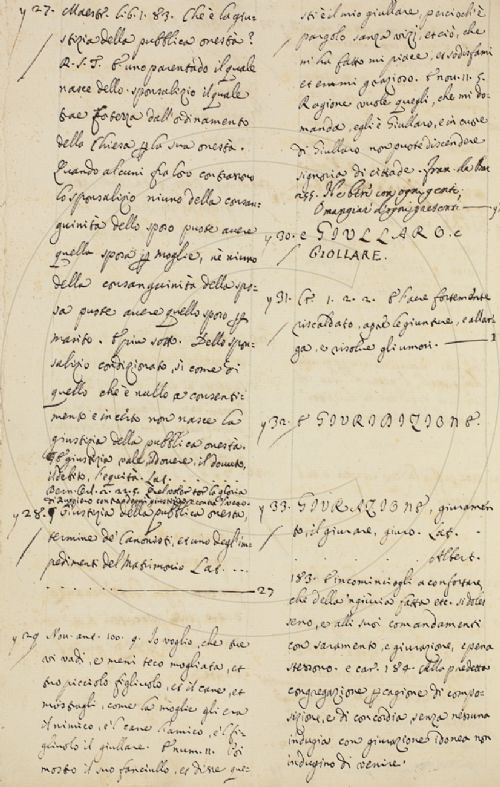 γ 27. Maestr. 2. 6. 1. 83. Che è la giu-
stizia della pubblica onesta?
R. S. T. È uno parentado il quale
nasce dello sponsalizio il quale
trae forza dall'ordinamento
della Chiesa per la sua onesta.
Quando alcuni fra loro contraggono
lo sponsalizio niuno della consan-
guinità dello sposo puote avere
quella sposa per moglie, nè niuno
della consanguinità della spo-
sa puote avere quello sposo per
marito. E più sott. Dello spon-
salizio condizionato, si come di
quello che è nullo a consenti-
mento e incerto non nasce la
giustizia della pubblica onesta.
giustizia vale Dovere, il dovuto,
il debito, l'equità. Lat.
γ 28. § Giustizia della pubblica onesta,
termine de' Canonisti, et uno degl'im-
pedimenti del Matrimonio Lat. ...
27
γ 29 Nov. ant. 100. 9. Io voglio, che tue
vi vadi, e meni teco mogliata, et
tuo picciolo figliuolo, et il cane, et
come la moglie gli era
il nimico, e 'l cane l'amico, e 'l fi-
gliuolo il giullare. E num. 11. Poi
mostrò il suo fanciullo, et disse que-
sti è il mio giullare, perciochè
pargolo sanza vizi, et ciò, che
mi ha fatto mi piace, et sodisfami
et emmi grazioso. E nov. 11. 5.
Ragione vuole quegli, che mi do-
manda, egli è Giullaro, e in cuore
di Giullaro non puote discendere
signoria di cittade. Fran. da Bar.
255. Ne ber con ogni gente,
O mangiar
γ 30. e GIULLARO. e
GIOLLARE.
γ 31. Cr. 1. 2. 2. E l'aere fortemente
riscaldato, apre le giunture, e allar-
ga, e risolve gli umori.
γ 32. e GIURIDIZIONE.
γ 33. GIURAZIONE, giuramen-
to, il giurare, giuro. Lat.
Albert.
183. E incominciogli a confortare,
che della 'ngiuria fatta etc. si doles-
seno, e alli suoi comandamenti
con saramento, e giurazione, e pena
stessono. e car. 189. Alla predetta
congregazione per cagione di compo-
sizione, e di concordia, senza nessuna
indugia con giurazione idonea non
indugino di venire.